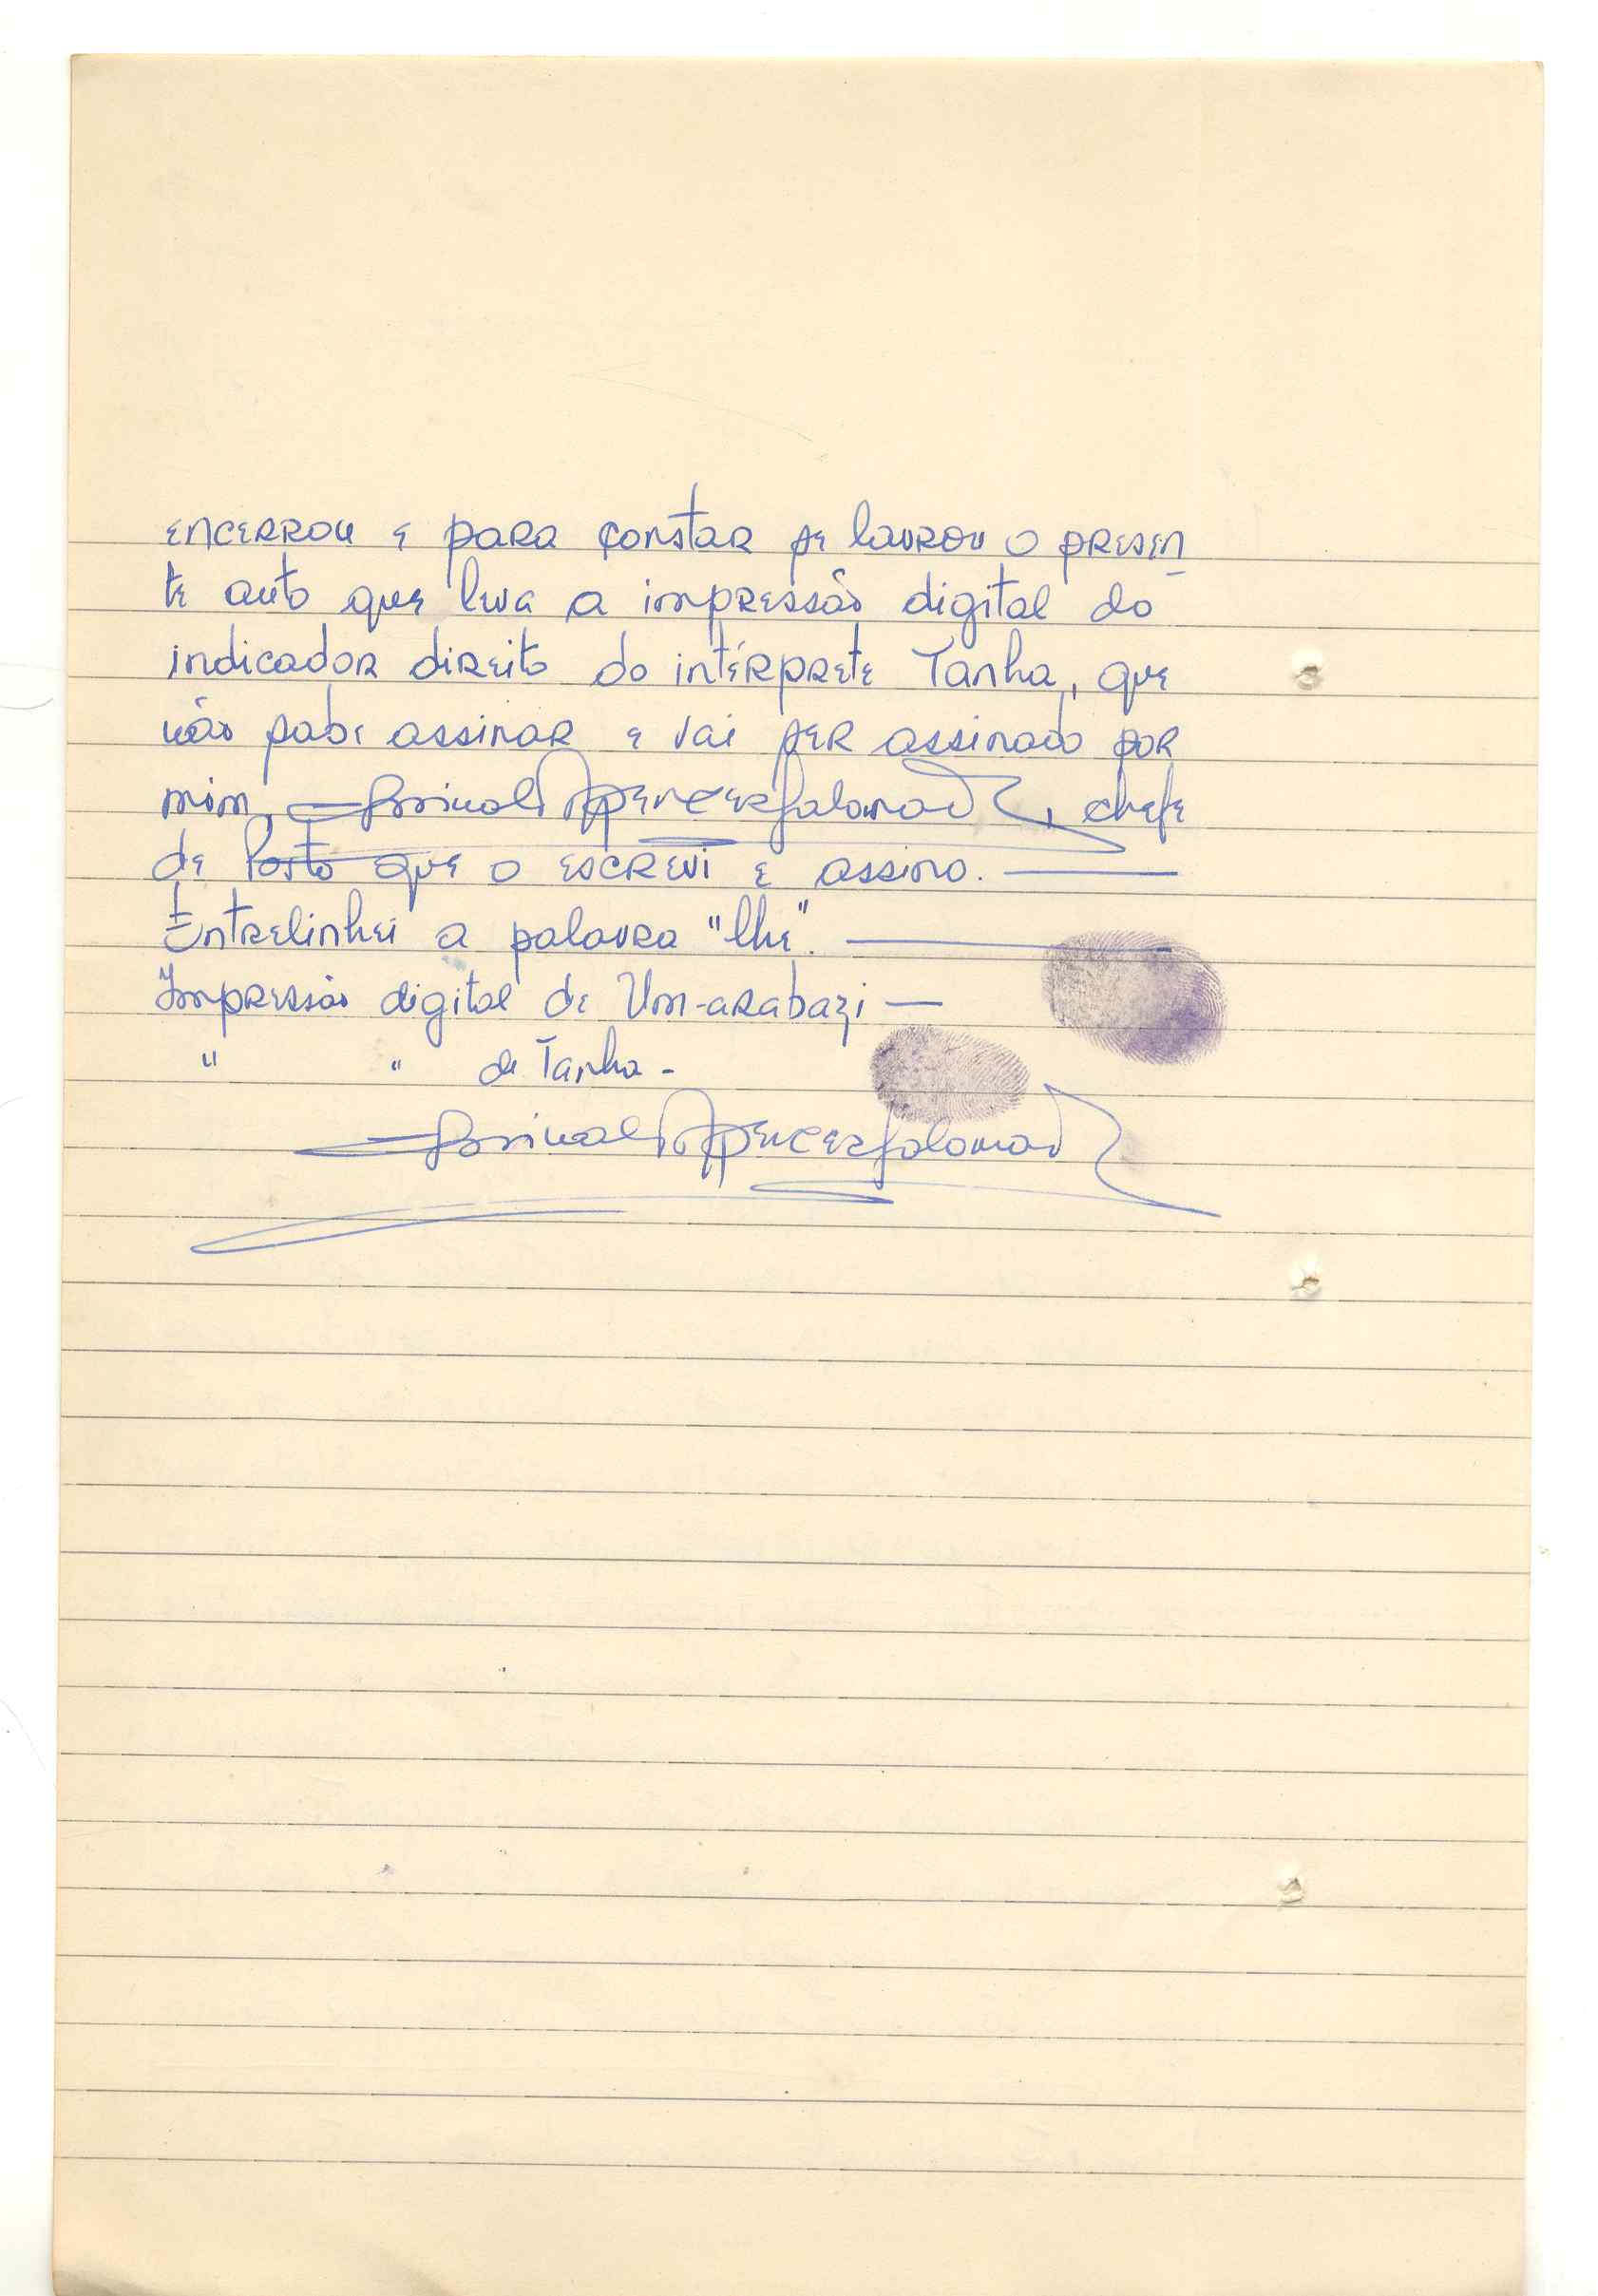 encerrou e para constar se lavrou o presen
te auto que leva a impressão digital do
indicador direito do intérprete Tanha, que
não sabe assinar e vai ser assinado por
mim, chefe
de Posto que o escrevi e assino.
Entrelinhei a palavra "lhe".
Impressão digital de Um-arabazi —
" " de Tanha -